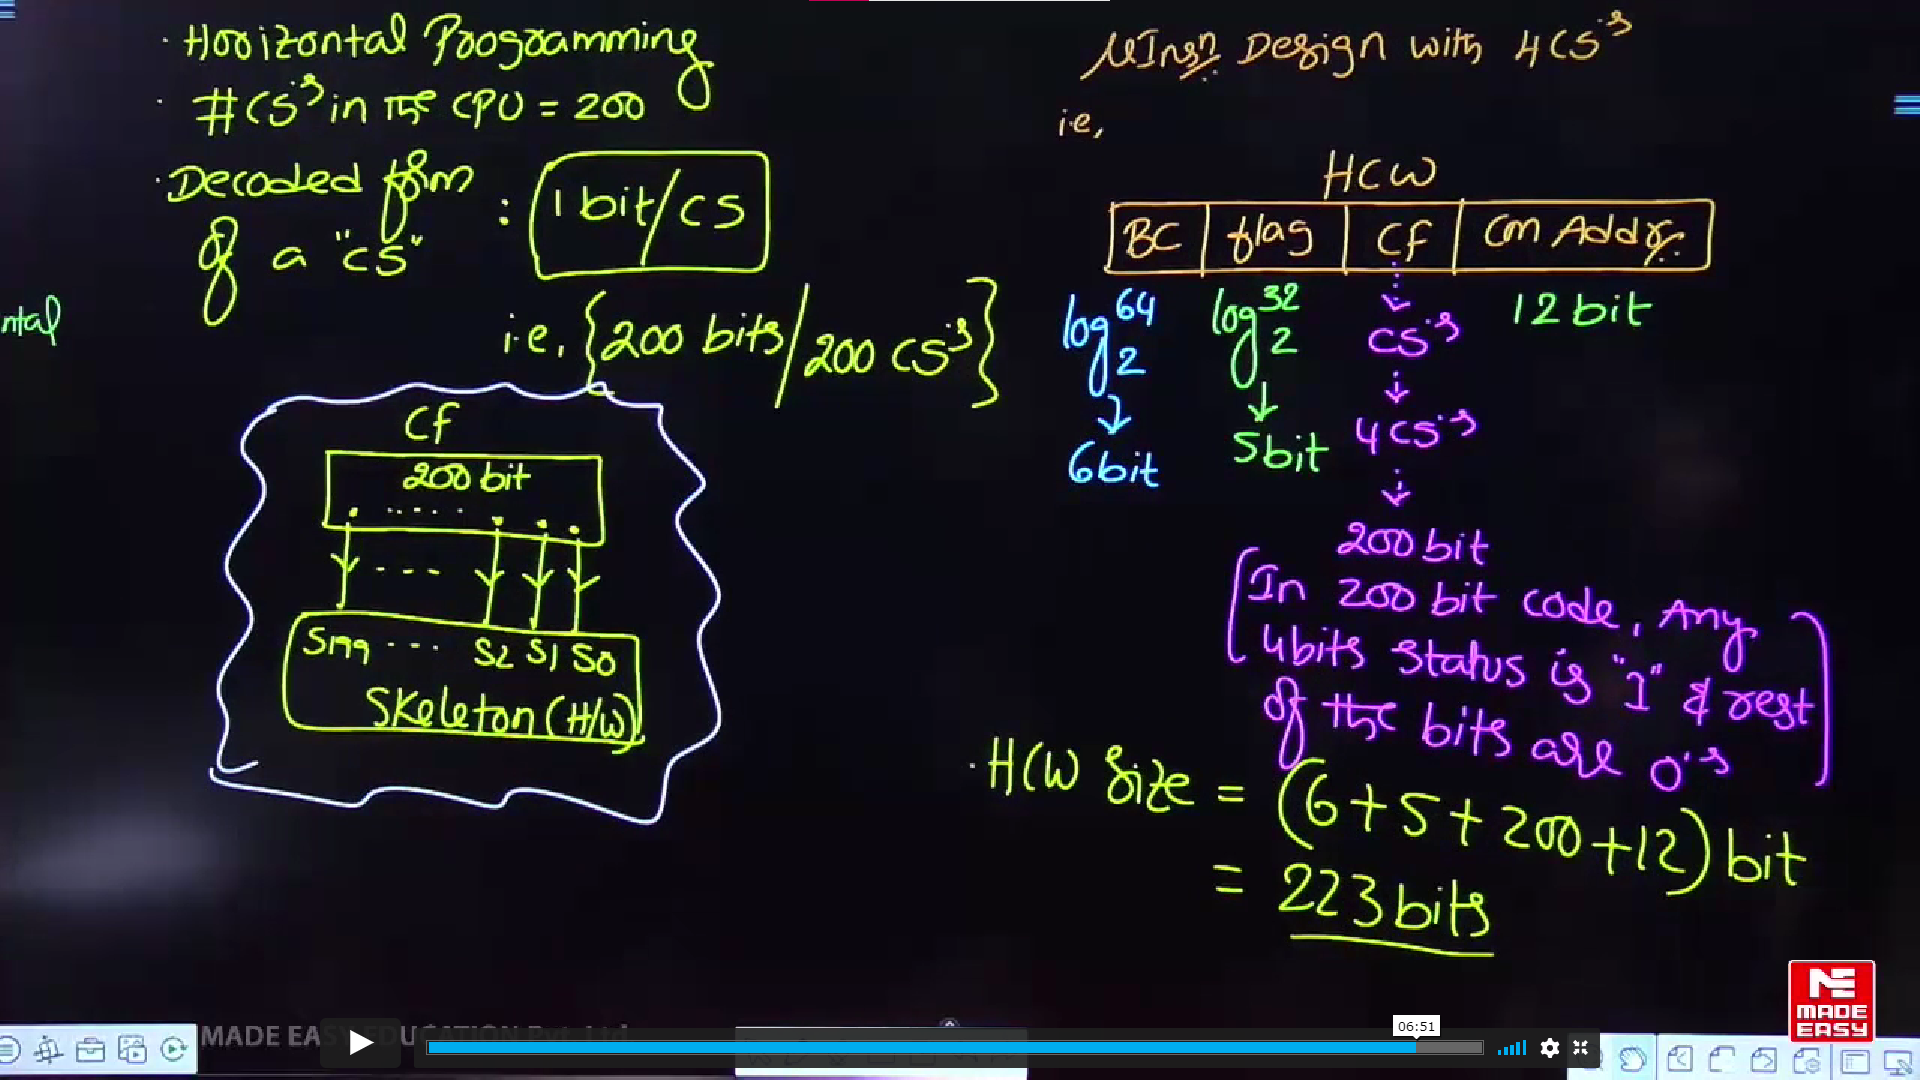 · Horizontal Programming
· #CS's in the CPU = 200
· Decoded form of a "CS" : 1 bit/CS
i.e, {200 bits/200 CS's}
ntal
CF
200 bit
S199 ··· S2 S1 S0
Skeleton (H/W)
μInsn Design with 4CS's
i.e,
HCW
BC | flag | CF | Cm Addr.
log 64 2
log 32 2
CS's
12 bit
6bit
5bit
4CS's
200 bit
[In 200 bit code, Any
4bits status is "1" & rest
of the bits are 0's]
· HCW Size = (6+5+200+12) bit
= 223 bits
MADE EASY EDUCATION Pvt. Ltd
06:51
ME
MADE
EASY